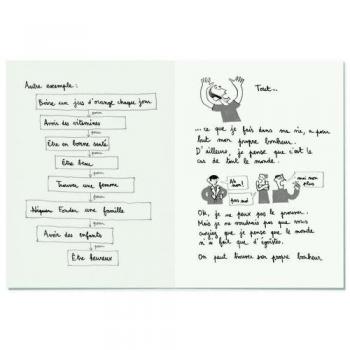 Autre exemple :
Boire un jus d'orange chaque jour
pour
Avoir des vitamines
pour
Être en bonne santé
pour
Être beau
pour
Trouver une femme
pour
Fonder une famille
pour
Avoir des enfants
pour
Être heureux
Tout...
... ce que je fais dans ma vie, a pour
but mon propre bonheur.
D'ailleurs, je pense que c'est le
cas de tout le monde.
Ah
non!
pas moi
moi non
plus
Ok, je ne peux pas le prouver.
Mais je ne voudrais pas que vous
croyiez que je pense que le monde
n'est fait que d'égoïstes.
On peut trouver son propre bonheur